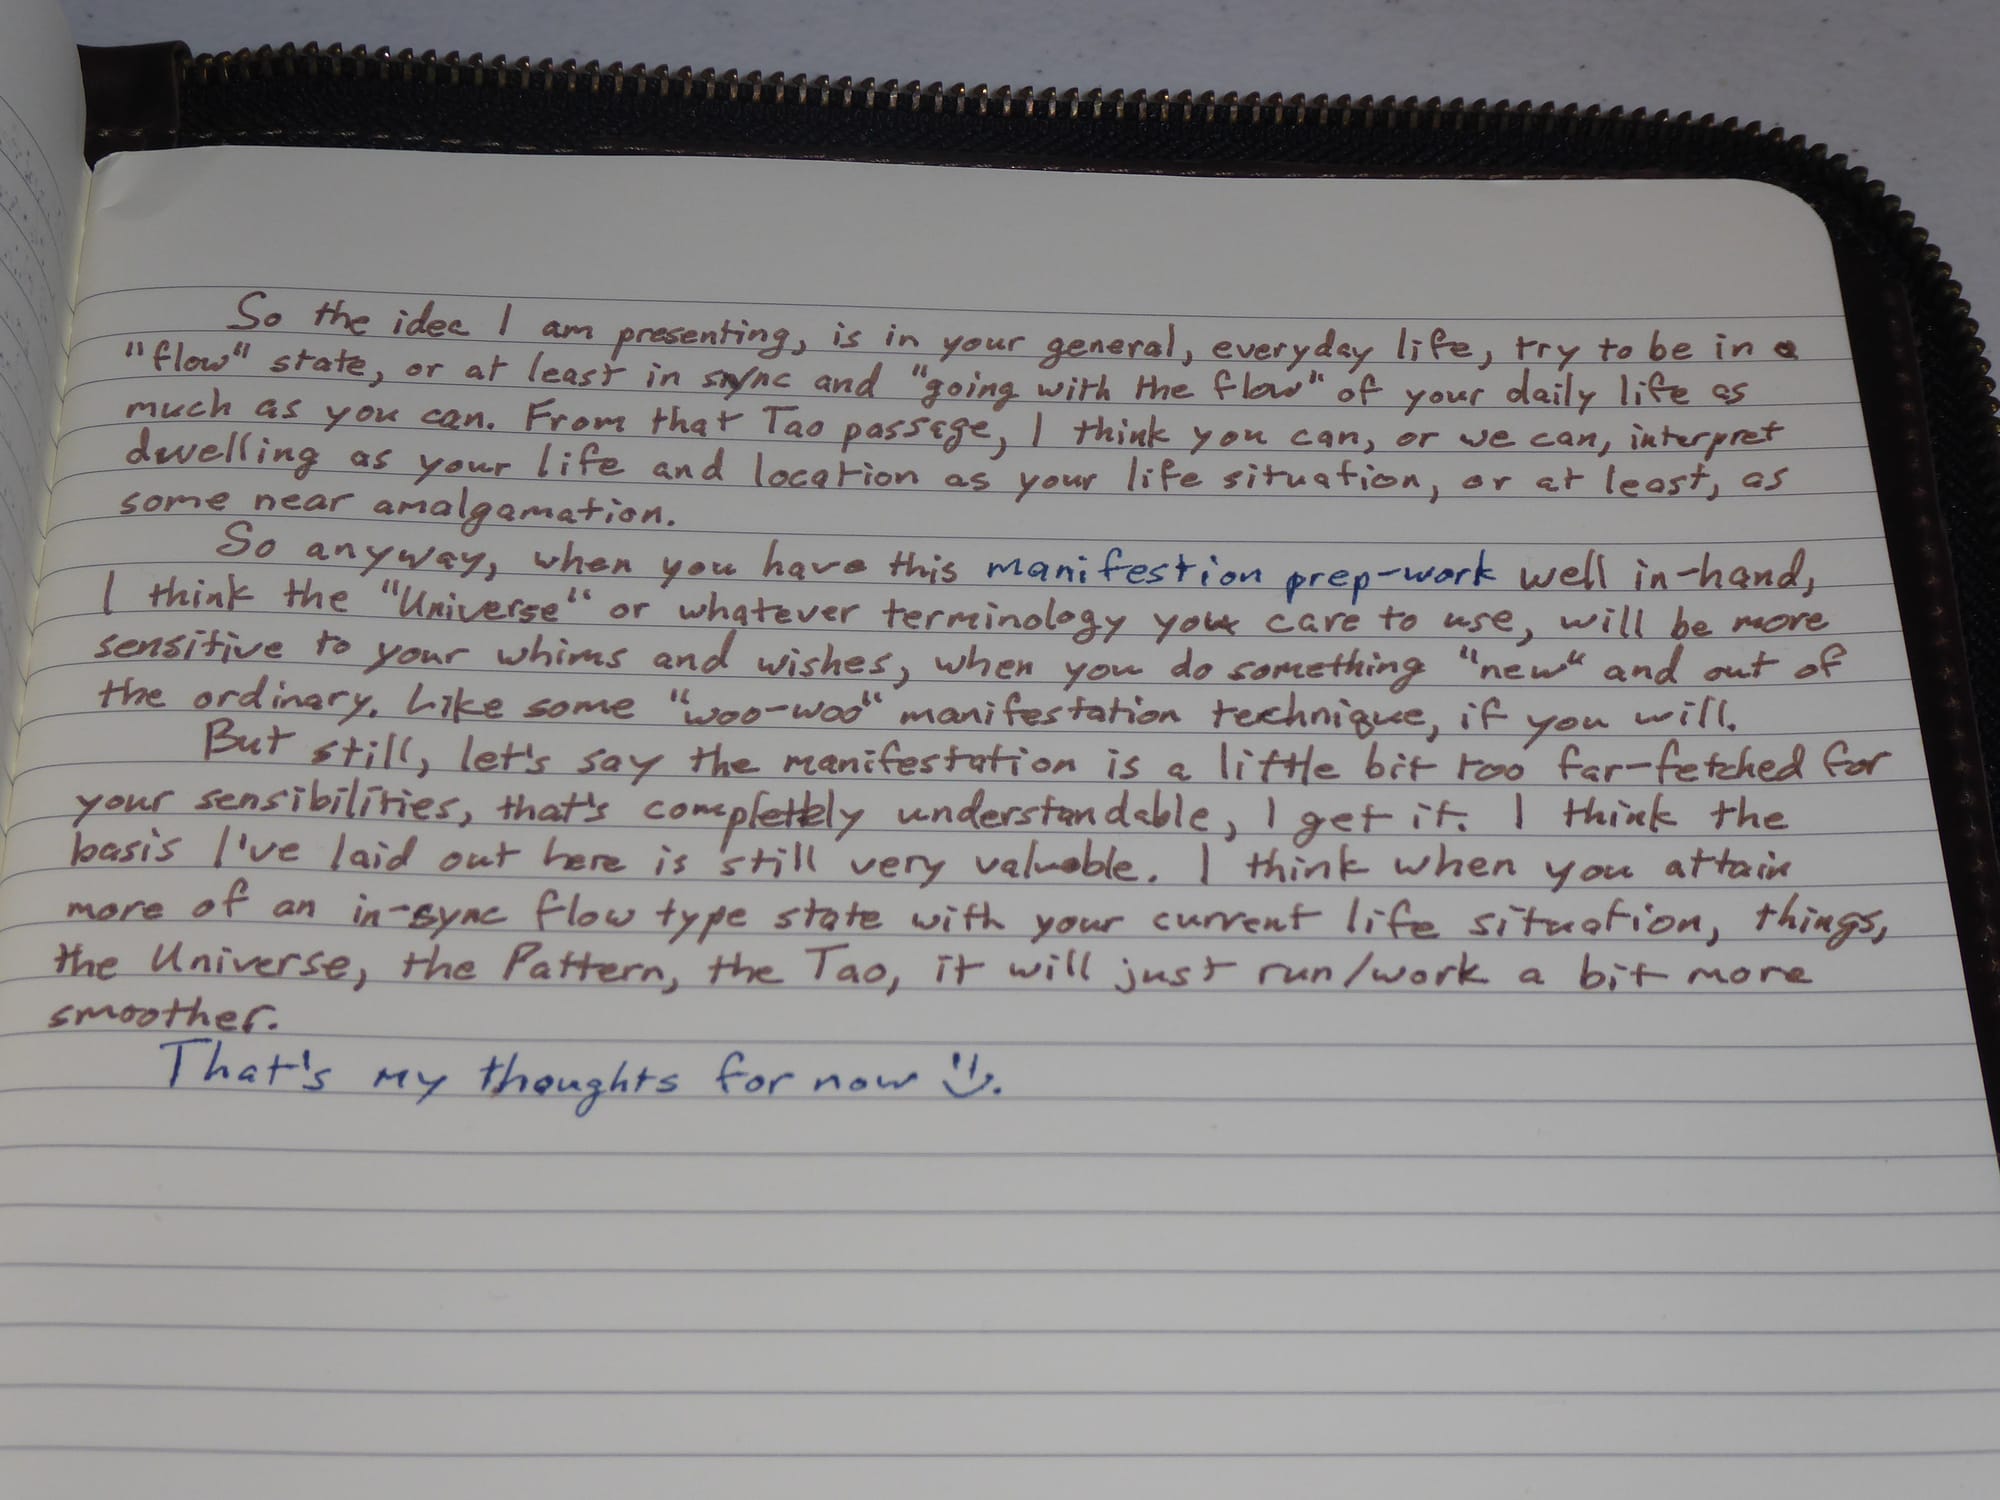 So the idea I am presenting, is in your general, everyday life, try to be in a
"flow" state, or at least in sync and "going with the flow" of your daily life as
much as you can. From that Tao passage, I think you can, or we can, interpret
dwelling as your life and location as your life situation, or at least, as
some near amalgamation.
So anyway, when you have this manifestion prep-work well in-hand,
I think the "Universe" or whatever terminology you care to use, will be more
sensitive to your whims and wishes, when you do something "new" and out of
the ordinary. Like some "woo-woo" manifestation technique, if you will.
But still, let's say the manifestation is a little bit too far-fetched for
your sensibilities, that's completely understandable, I get it. I think the
basis I've laid out here is still very valuable. I think when you attain
more of an in-sync flow type state with your current life situation, things,
the Universe, the Pattern, the Tao, it will just run/work a bit more
smoother.
That's my thoughts for now